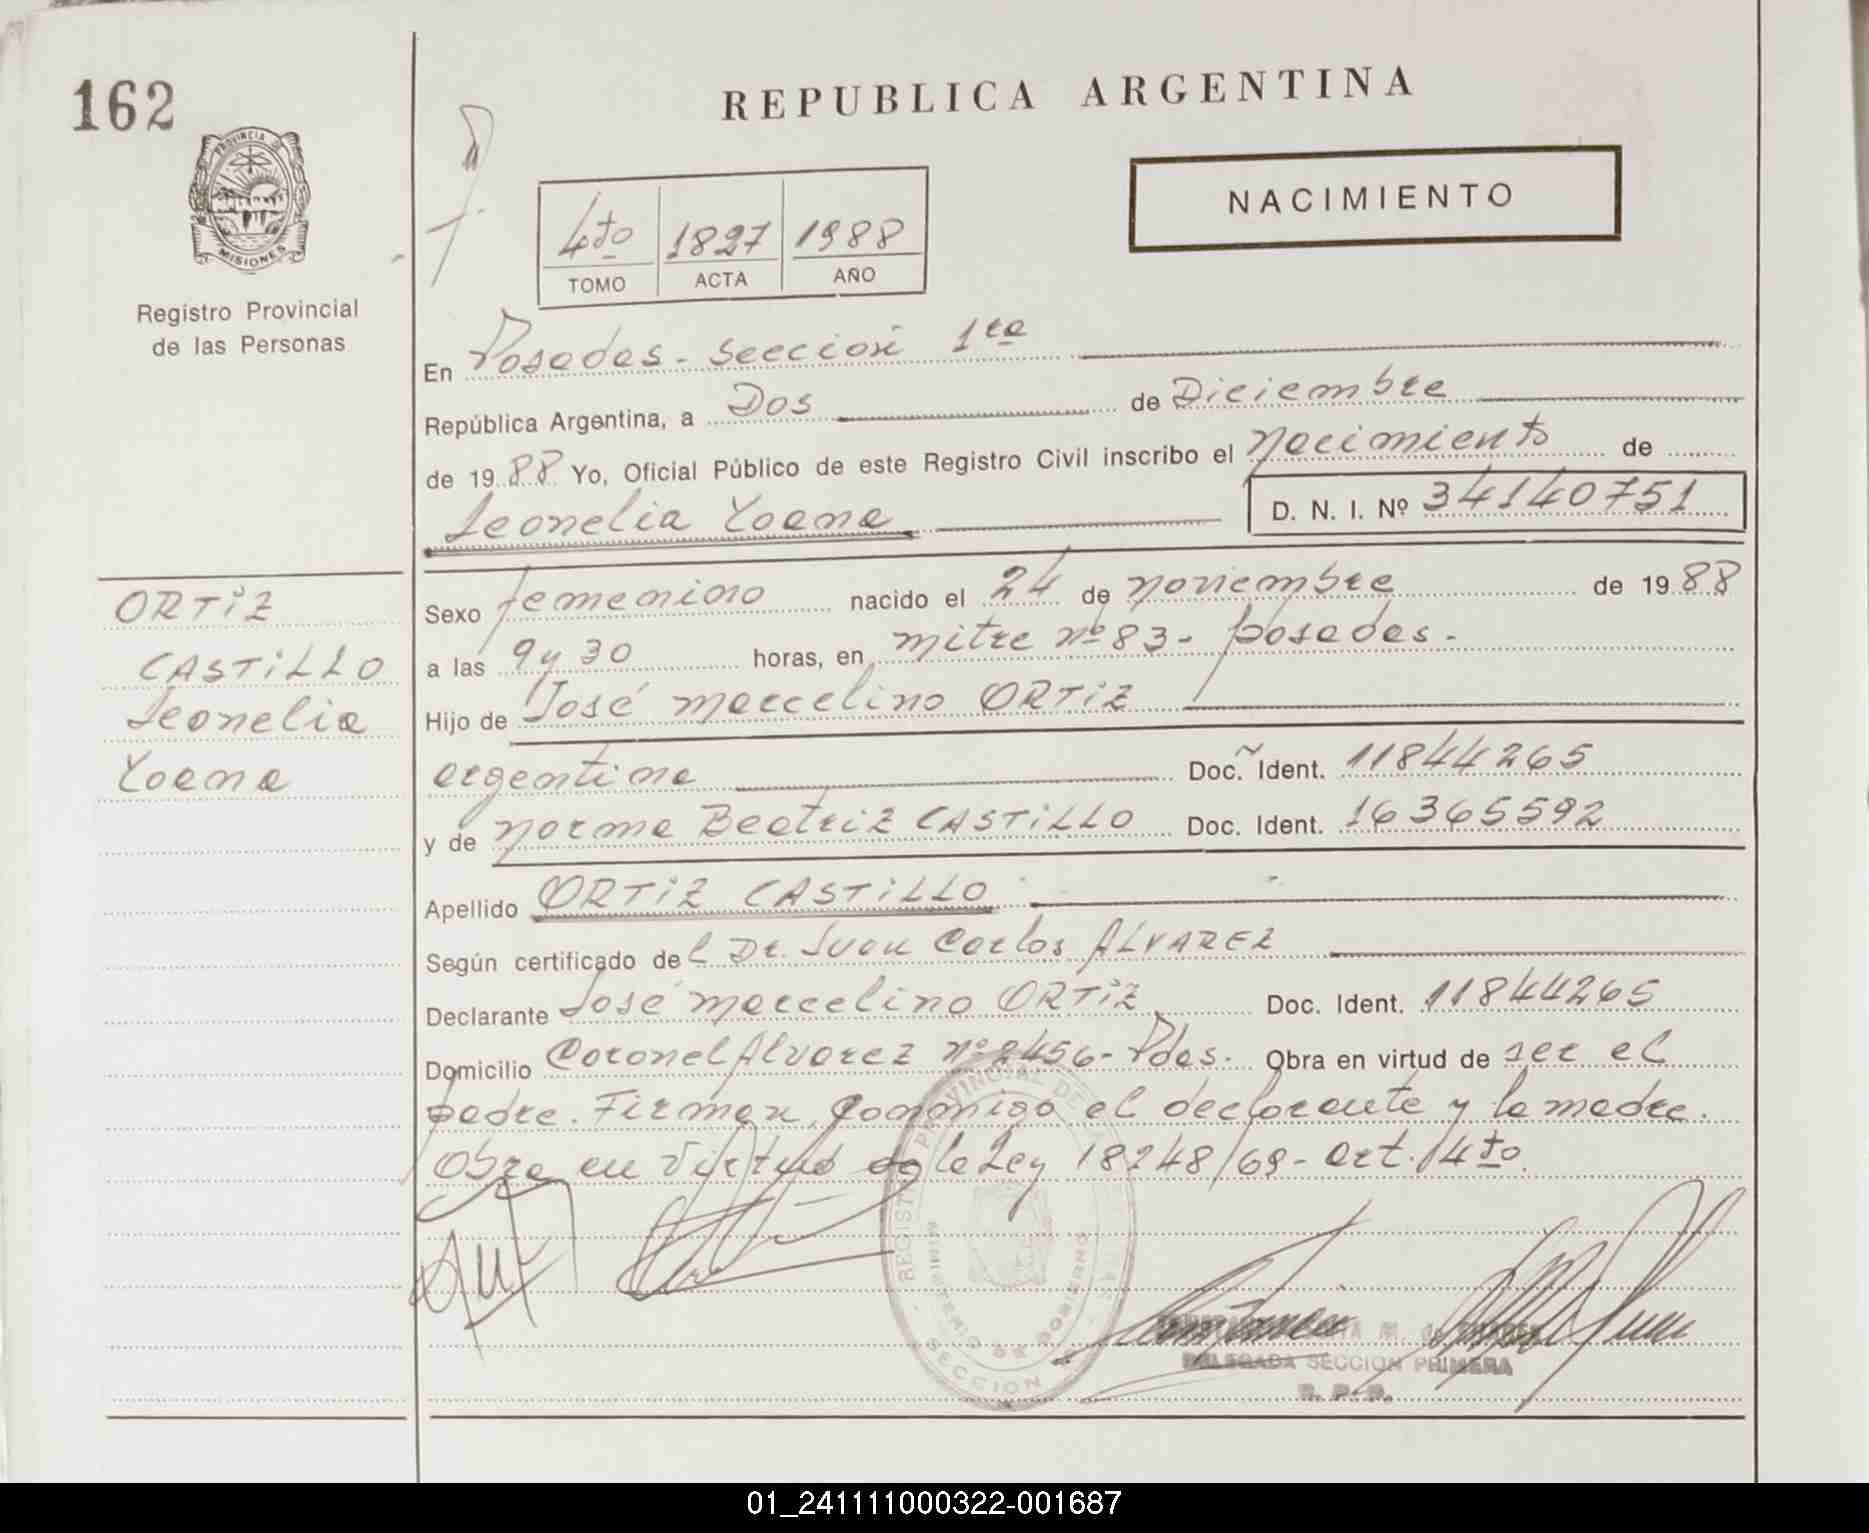 162
PROVINCIA DE
MISIONES
Registro Provincial
de las Personas
REPUBLICA ARGENTINA
NACIMIENTO
4to 1827 1988
TOMO ACTA AÑO
En Posadas - sección 1ra
República Argentina, a Dos de Diciembre
de 1988 Yo, Oficial Público de este Registro Civil inscribo el nacimiento de
Leonelia Yoana D. N. I. Nº 34140751
ORTiZ
CASTiLLO
Leonelia
Yoana
Sexo femenino nacido el 24 de noviembre de 1988
a las 9 y 30 horas, en mitre nº 83 - posadas.
Hijo de José marcelino ORTiZ
argentina Doc. Ident. 11844265
y de norma Beatriz CASTiLLO Doc. Ident. 16365592
Apellido ORTiZ CASTiLLO
Según certificado del Dr. Juan Carlos ALVAREZ
Declarante José marcelino ORTiZ Doc. Ident. 11844265
Domicilio Coronel Alvarez nº 2456 - Pdas. Obra en virtud de ser el
padre. Firman conmigo el declarante y la madre.
Obra en virtud de la Ley 18248/69 - art. 4to
REGISTRO PROVINCIAL DE LAS
MINISTERIO DE GOBIERNO
SECCION
DELEGADA SECCION PRIMERA
R. P. P.
01_241111000322-001687